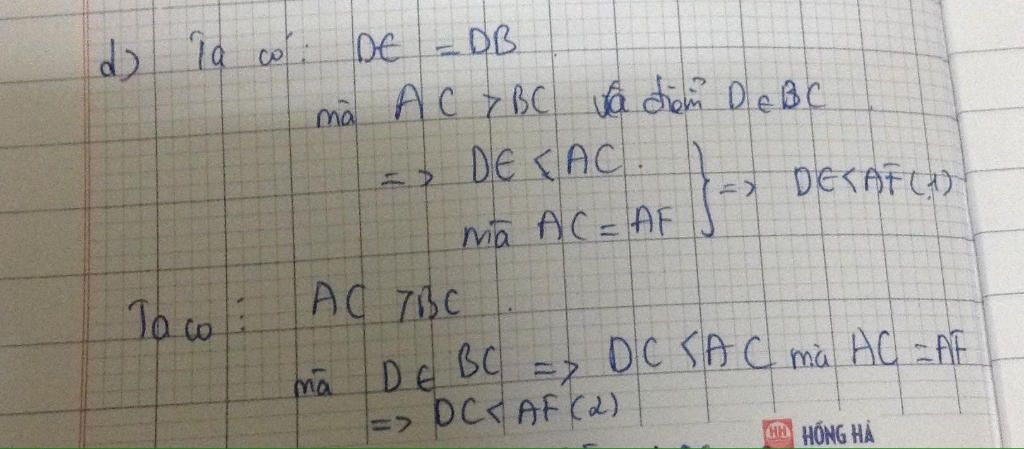 d) Ta có: DE = DB
mà AC > BC và điểm D ∈ BC
=> DE < AC. } => DE < AF (1)
mà AC = AF
Ta có: AC > BC.
mà D ∈ BC => DC < AC mà AC = AF
=> DC < AF (2)
HH HỒNG HÀ